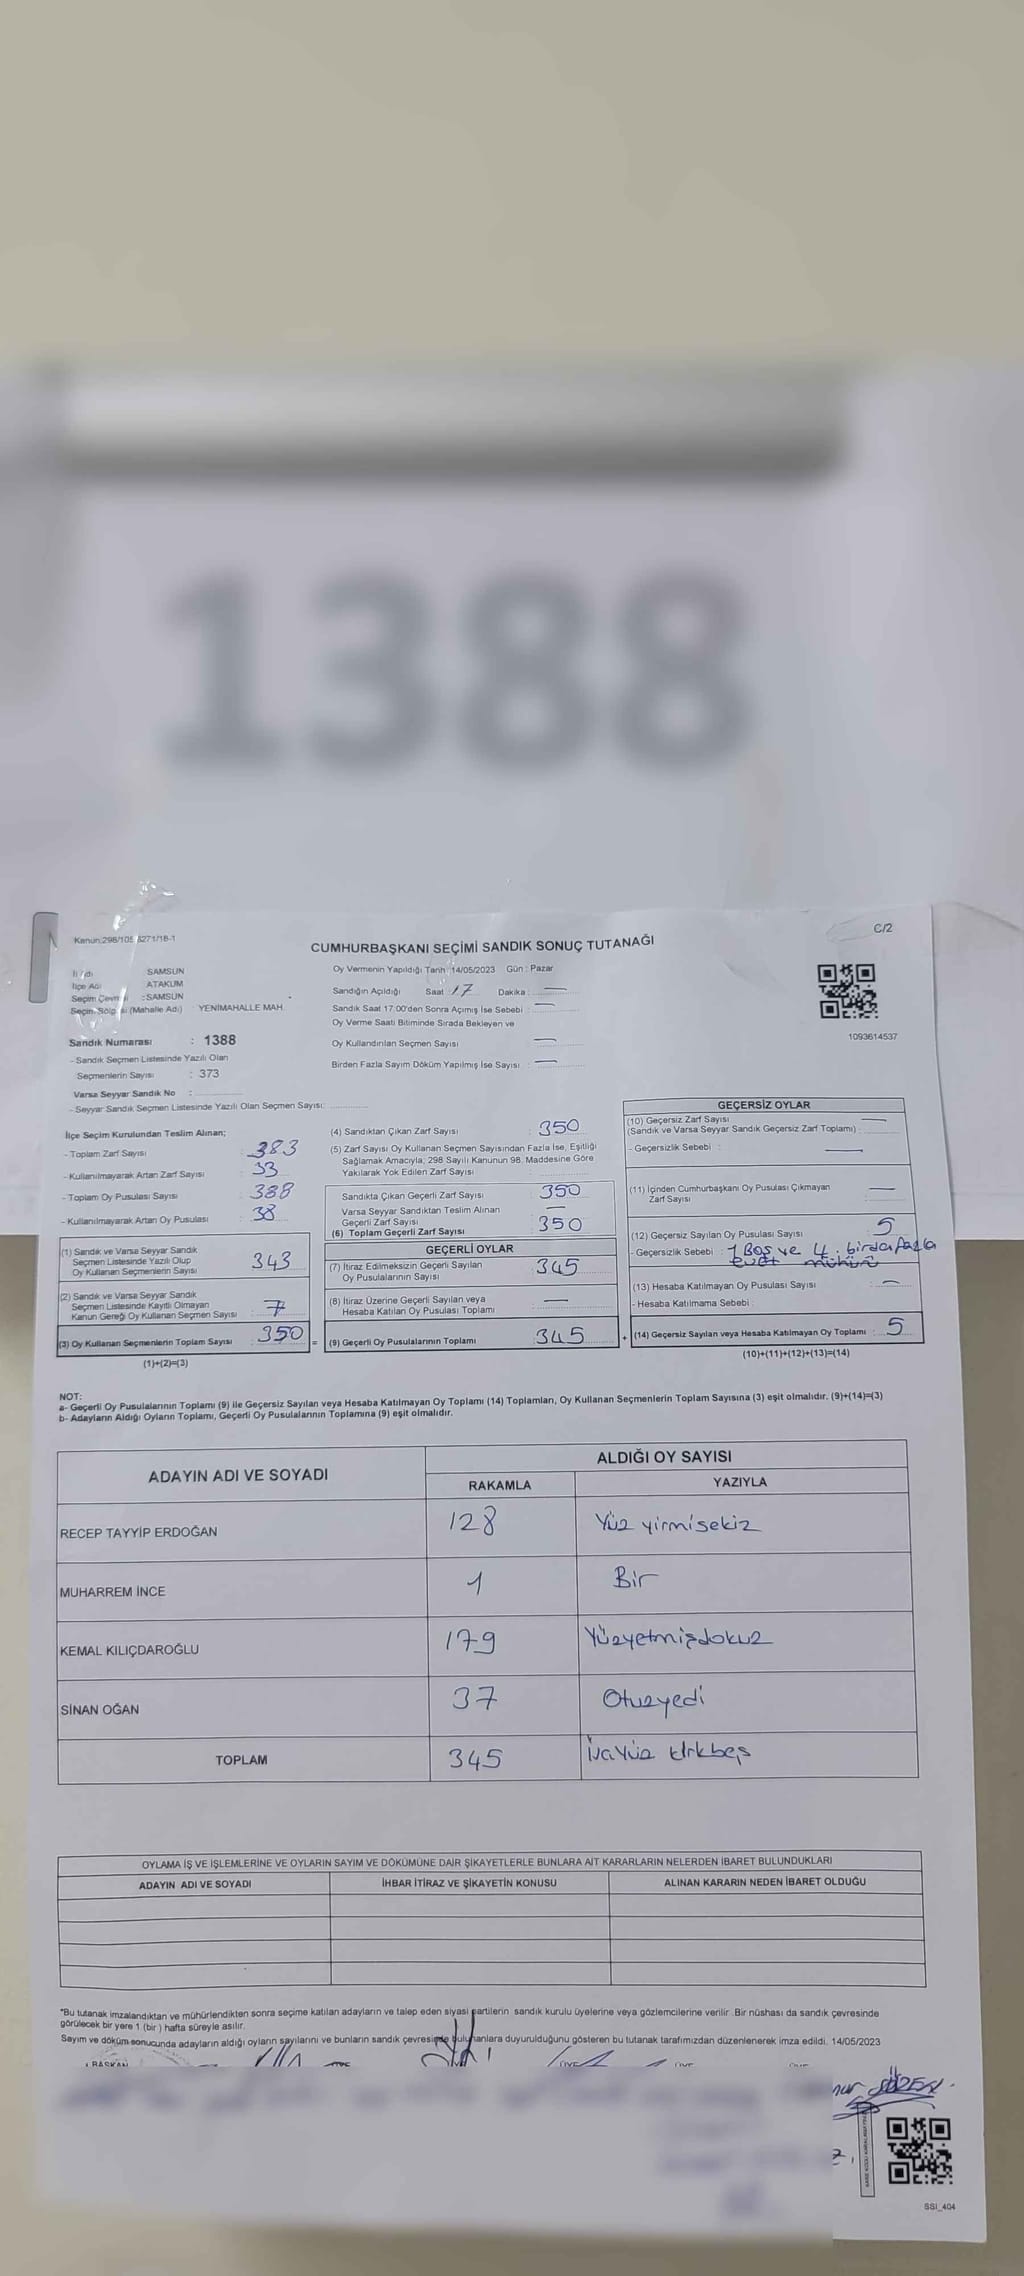 1388
Kanun:298/105 6271/18-1
C/2
CUMHURBAŞKANI SEÇİMİ SANDIK SONUÇ TUTANAĞI
İl Adı SAMSUN
İlçe Adı ATAKUM
Seçim Çevresi : SAMSUN
Seçim Bölgesi (Mahalle Adı) : YENİMAHALLE MAH.
Sandık Numarası : 1388
- Sandık Seçmen Listesinde Yazılı Olan
Seçmenlerin Sayısı : 373
Varsa Seyyar Sandık No :
- Seyyar Sandık Seçmen Listesinde Yazılı Olan Seçmen Sayısı:
Oy Vermenin Yapıldığı Tarih : 14/05/2023 Gün : Pazar
Sandığın Açıldığı Saat : 17 Dakika : —
Sandık Saat 17:00'den Sonra Açılmış İse Sebebi : —
Oy Verme Saati Bitiminde Sırada Bekleyen ve
Oy Kullandırılan Seçmen Sayısı : —
Birden Fazla Sayım Döküm Yapılmış İse Sayısı : —
1093614537
İlçe Seçim Kurulundan Teslim Alınan;
- Toplam Zarf Sayısı : 383
- Kullanılmayarak Artan Zarf Sayısı : 33
- Toplam Oy Pusulası Sayısı : 388
- Kullanılmayarak Artan Oy Pusulası : 38
(1) Sandık ve Varsa Seyyar Sandık
Seçmen Listesinde Yazılı Olup
Oy Kullanan Seçmenlerin Sayısı 343
(2) Sandık ve Varsa Seyyar Sandık
Seçmen Listesinde Kayıtlı Olmayan
Kanun Gereği Oy Kullanan Seçmen Sayısı 7
(3) Oy Kullanan Seçmenlerin Toplam Sayısı : 350
(1)+(2)=(3)
(4) Sandıktan Çıkan Zarf Sayısı : 350
(5) Zarf Sayısı Oy Kullanan Seçmen Sayısından Fazla İse, Eşitliği
Sağlamak Amacıyla; 298 Sayılı Kanunun 98. Maddesine Göre
Yakılarak Yok Edilen Zarf Sayısı
Sandıkta Çıkan Geçerli Zarf Sayısı : 350
Varsa Seyyar Sandıktan Teslim Alınan
Geçerli Zarf Sayısı —
(6) Toplam Geçerli Zarf Sayısı 350
GEÇERLİ OYLAR
(7) İtiraz Edilmeksizin Geçerli Sayılan
Oy Pusulalarının Sayısı 345
(8) İtiraz Üzerine Geçerli Sayılan veya
Hesaba Katılan Oy Pusulası Toplamı —
= (9) Geçerli Oy Pusulalarının Toplamı 345
GEÇERSİZ OYLAR
(10) Geçersiz Zarf Sayısı
(Sandık ve Varsa Seyyar Sandık Geçersiz Zarf Toplamı) : —
- Geçersizlik Sebebi : —
(11) İçinden Cumhurbaşkanı Oy Pusulası Çıkmayan
Zarf Sayısı —
(12) Geçersiz Sayılan Oy Pusulası Sayısı : 5
- Geçersizlik Sebebi : 1 Boş ve 4 birden fazla
evet mühürü
(13) Hesaba Katılmayan Oy Pusulası Sayısı : —
- Hesaba Katılmama Sebebi :
+ (14) Geçersiz Sayılan veya Hesaba Katılmayan Oy Toplamı : 5
(10)+(11)+(12)+(13)=(14)
NOT:
a- Geçerli Oy Pusulalarının Toplamı (9) ile Geçersiz Sayılan veya Hesaba Katılmayan Oy Toplamı (14) Toplamları, Oy Kullanan Seçmenlerin Toplam Sayısına (3) eşit olmalıdır. (9)+(14)=(3)
b- Adayların Aldığı Oyların Toplamı, Geçerli Oy Pusulalarının Toplamına (9) eşit olmalıdır.
ADAYIN ADI VE SOYADI
ALDIĞI OY SAYISI
RAKAMLA YAZIYLA
RECEP TAYYİP ERDOĞAN 128 Yüz yirmisekiz
MUHARREM İNCE 1 Bir
KEMAL KILIÇDAROĞLU 179 Yüzyetmişdokuz
SİNAN OĞAN 37 Otuzyedi
TOPLAM 345 Üçyüz kırkbeş
OYLAMA İŞ VE İŞLEMLERİNE VE OYLARIN SAYIM VE DÖKÜMÜNE DAİR ŞİKAYETLERLE BUNLARA AİT KARARLARIN NELERDEN İBARET BULUNDUKLARI
ADAYIN ADI VE SOYADI İHBAR İTİRAZ VE ŞİKAYETİN KONUSU ALINAN KARARIN NEDEN İBARET OLDUĞU
*Bu tutanak imzalandıktan ve mühürlendikten sonra seçime katılan adayların ve talep eden siyasi partilerin sandık kurulu üyelerine veya gözlemcilerine verilir. Bir nüshası da sandık çevresinde
görülecek bir yere 1 (bir) hafta süreyle asılır.
Sayım ve döküm sonucunda adayların aldığı oyların sayılarını ve bunların sandık çevresinde bulunanlara duyurulduğunu gösteren bu tutanak tarafımızdan düzenlenerek imza edildi. 14/05/2023
BAŞKAN
SSI_404